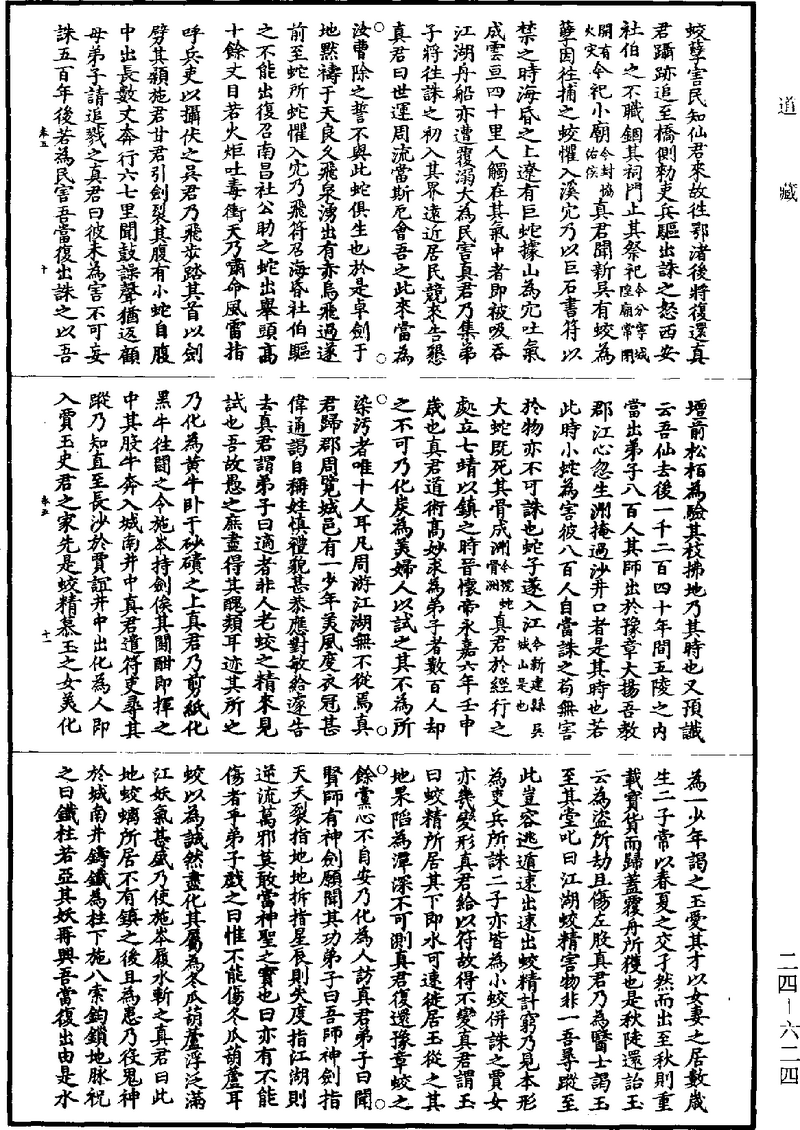 道藏
蛟孽害民知仙君來故往鄂渚後將復還真
君躡跡追至橋側勑吏兵驅出誅之怒西安
社伯之不職錮其祠門止其祭祀今分寧城隍廟常閉
開有火灾令祀小廟今封協佑侯真君聞新吳有蛟為
孽因往捕之蛟懼入溪穴乃以巨石書符以
禁之時海昏之上遼有巨蛇據山為穴吐氣
成雲亘四十里人觸在其氣中者即被吸吞
江湖舟船亦遭覆溺大為民害真君乃集弟
子將往誅之初入其界遠近居民競來告懇
真君曰世運周流當斯厄會吾之此來當為
汝曹除之誓不與此蛇俱生也於是卓劍于
地默禱于天良久飛泉湧出有赤烏飛過遂
前至蛇所蛇懼入穴乃飛符召海昏社伯驅
之不能出復召南昌社公助之蛇出舉頭高
十餘丈目若火炬吐毒衝天乃嘯命風雷指
呼兵吏以攝伏之吳君乃飛步踏其首以劍
劈其顙施君甘君引劍裂其腹有小蛇自腹
中出長數丈奔行六七里聞鼓譟聲猶返顧
母弟子請追戮之真君曰彼未為害不可妄
誅五百年後若為民害吾當復出誅之以吾
卷五
十
壇前松栢為驗其枝拂地乃其時也又預讖
云吾仙去後一千二百四十年間五陵之内
當出弟子八百人其師出於豫章大揚吾教
郡江心忽生洲掩過沙井口者是其時也若
此時小蛇為害彼八百人自當誅之苟無害
於物亦不可誅也蛇子遂入江今新建縣吳城山是也
大蛇既死其骨成洲今號蛇骨洲真君於經行之
處立七靖以鎮之時晉懷帝永嘉六年壬申
歲也真君道術高妙求為弟子者數百人却
之不可乃化炭為美婦人以試之其不為所
染污者唯十人耳凡周游江湖無不從焉真
君歸郡周覽城邑有一少年美風度衣冠甚
偉通謁自稱姓慎禮貌甚恭應對敏給遽告
去真君謂弟子曰適者非人老蛟之精來見
試也吾故愚之庶盡得其醜類耳迹其所之
乃化為黃牛卧于砂磧之上真君乃剪紙化
黑牛往鬪之令施岑持劍俟其鬪酣即揮之
中其股牛奔入城南井中真君遣符吏尋其
蹤乃知直至長沙於賈誼井中出化為人即
入賈玉史君之家先是蛟精慕玉之女美化
卷五
十一
為一少年謁之玉愛其才以女妻之居數歲
生二子常以春夏之交孑然而出至秋則重
載寶貨而歸蓋覆舟所獲也是秋陡還詒玉
云為盜所劫且傷左股真君乃為醫士謁玉
至其堂叱曰江湖蛟精害物非一吾尋蹤至
此豈容逃遁速出速出蛟精計窮乃見本形
為吏兵所誅二子亦皆為小蛟併誅之賈女
亦幾變形真君給以符故得不變真君謂玉
曰蛟精所居其下即水可速徙居玉從之其
地果陷為潭深不可測真君復還豫章蛟之
餘黨心不自安乃化為人訪真君弟子曰聞
賢師有神劍願聞其功弟子曰吾師神劍指
天天裂指地地拆指星辰則失度指江湖則
逆流萬邪莫敢當神聖之寶也曰亦有不能
傷者乎弟子戲之曰惟不能傷冬瓜葫蘆耳
蛟以為誠然盡化其屬為冬瓜葫蘆浮泛滿
江妖氣甚盛乃使施岑履水斬之真君曰此
地蛟螭所居不有鎮之後且為患乃役鬼神
於城南井鑄鐵為柱下施八索鉤鎖地脉祝
之曰鐵柱若亞其妖再興吾當復出由是水
二四—六二四